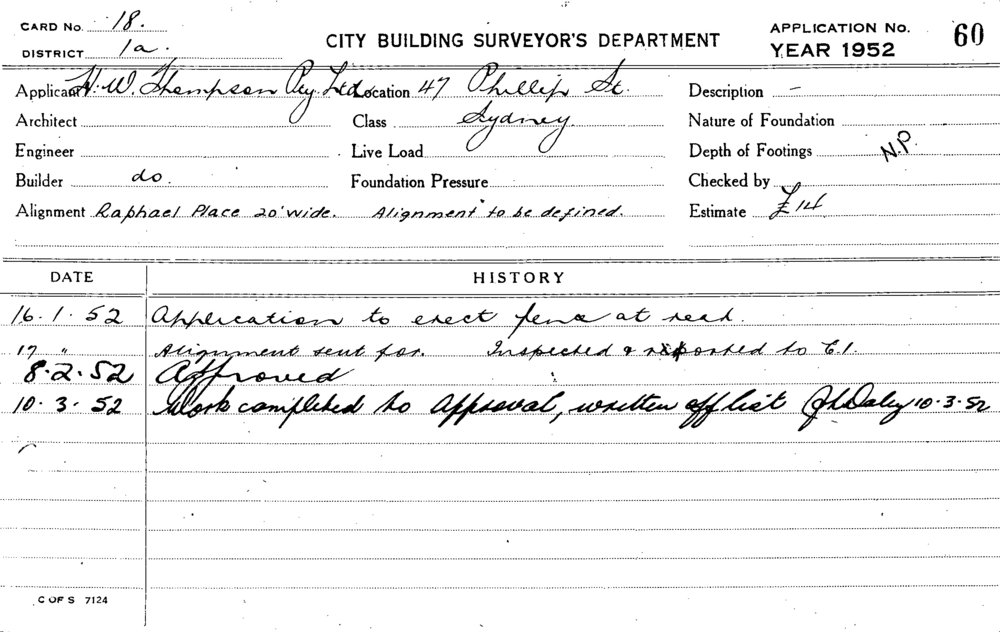 CARD No. 18.
DISTRICT 1a.
CITY BUILDING SURVEYOR'S DEPARTMENT
APPLICATION No. 60
YEAR 1952
Applicant H. W. Thompson Pty. Ltd. Location 47 Phillip St. Description -
Architect Class Sydney. Nature of Foundation
Engineer Live Load Depth of Footings N.P.
Builder do. Foundation Pressure Checked by
Alignment Raphael Place 20' wide. Alignment to be defined. Estimate £14
DATE HISTORY
16.1.52 Application to erect fence at rear.
17 " Alignment sent for. Inspected & reported to C.I.
8.2.52 Approved
10.3.52 Work completed to Approval, written off list J L Daley 10.3.52
C OF S 7124